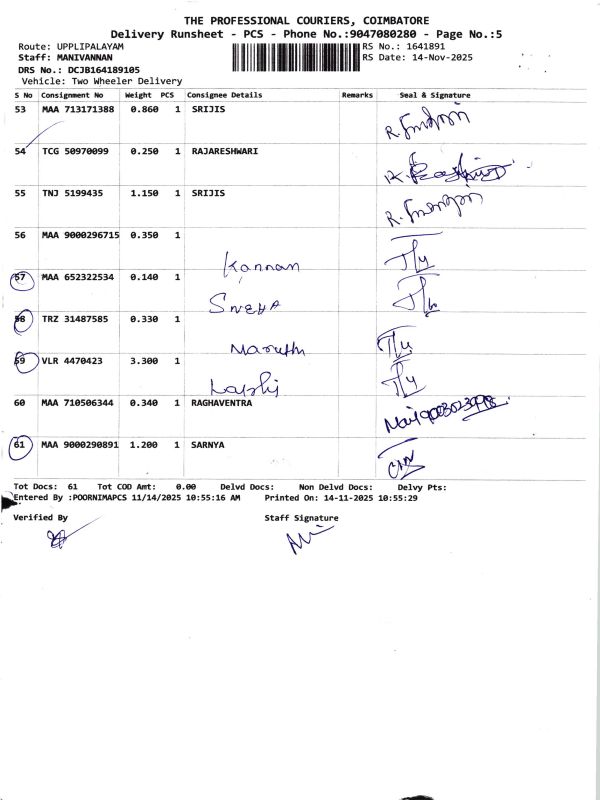 THE PROFESSIONAL COURIERS, COIMBATORE
Delivery Runsheet - PCS - Phone No.:9047080280 - Page No.:5
Route: UPPLIPALAYAM RS No.: 1641891
Staff: MANIVANNAN RS Date: 14-Nov-2025
DRS No.: DCJB164189105
Vehicle: Two Wheeler Delivery
S No Consignment No Weight PCS Consignee Details Remarks Seal & Signature
53 MAA 713171388 0.860 1 SRIJIS
54 TCG 50970099 0.250 1 RAJARESHWARI
55 TNJ 5199435 1.150 1 SRIJIS
56 MAA 9000296715 0.350 1
Kannan
57 MAA 652322534 0.140 1
SNEHA
58 TRZ 31487585 0.330 1
59 VLR 4470423 3.300 1
60 MAA 710506344 0.340 1 RAGHAVENTRA
61 MAA 9000290891 1.200 1 SARNYA
Tot Docs: 61 Tot COD Amt: 0.00 Delvd Docs: Non Delvd Docs: Delvy Pts:
Entered By :POORNIMAPCS 11/14/2025 10:55:16 AM Printed On: 14-11-2025 10:55:29
Verified By Staff Signature